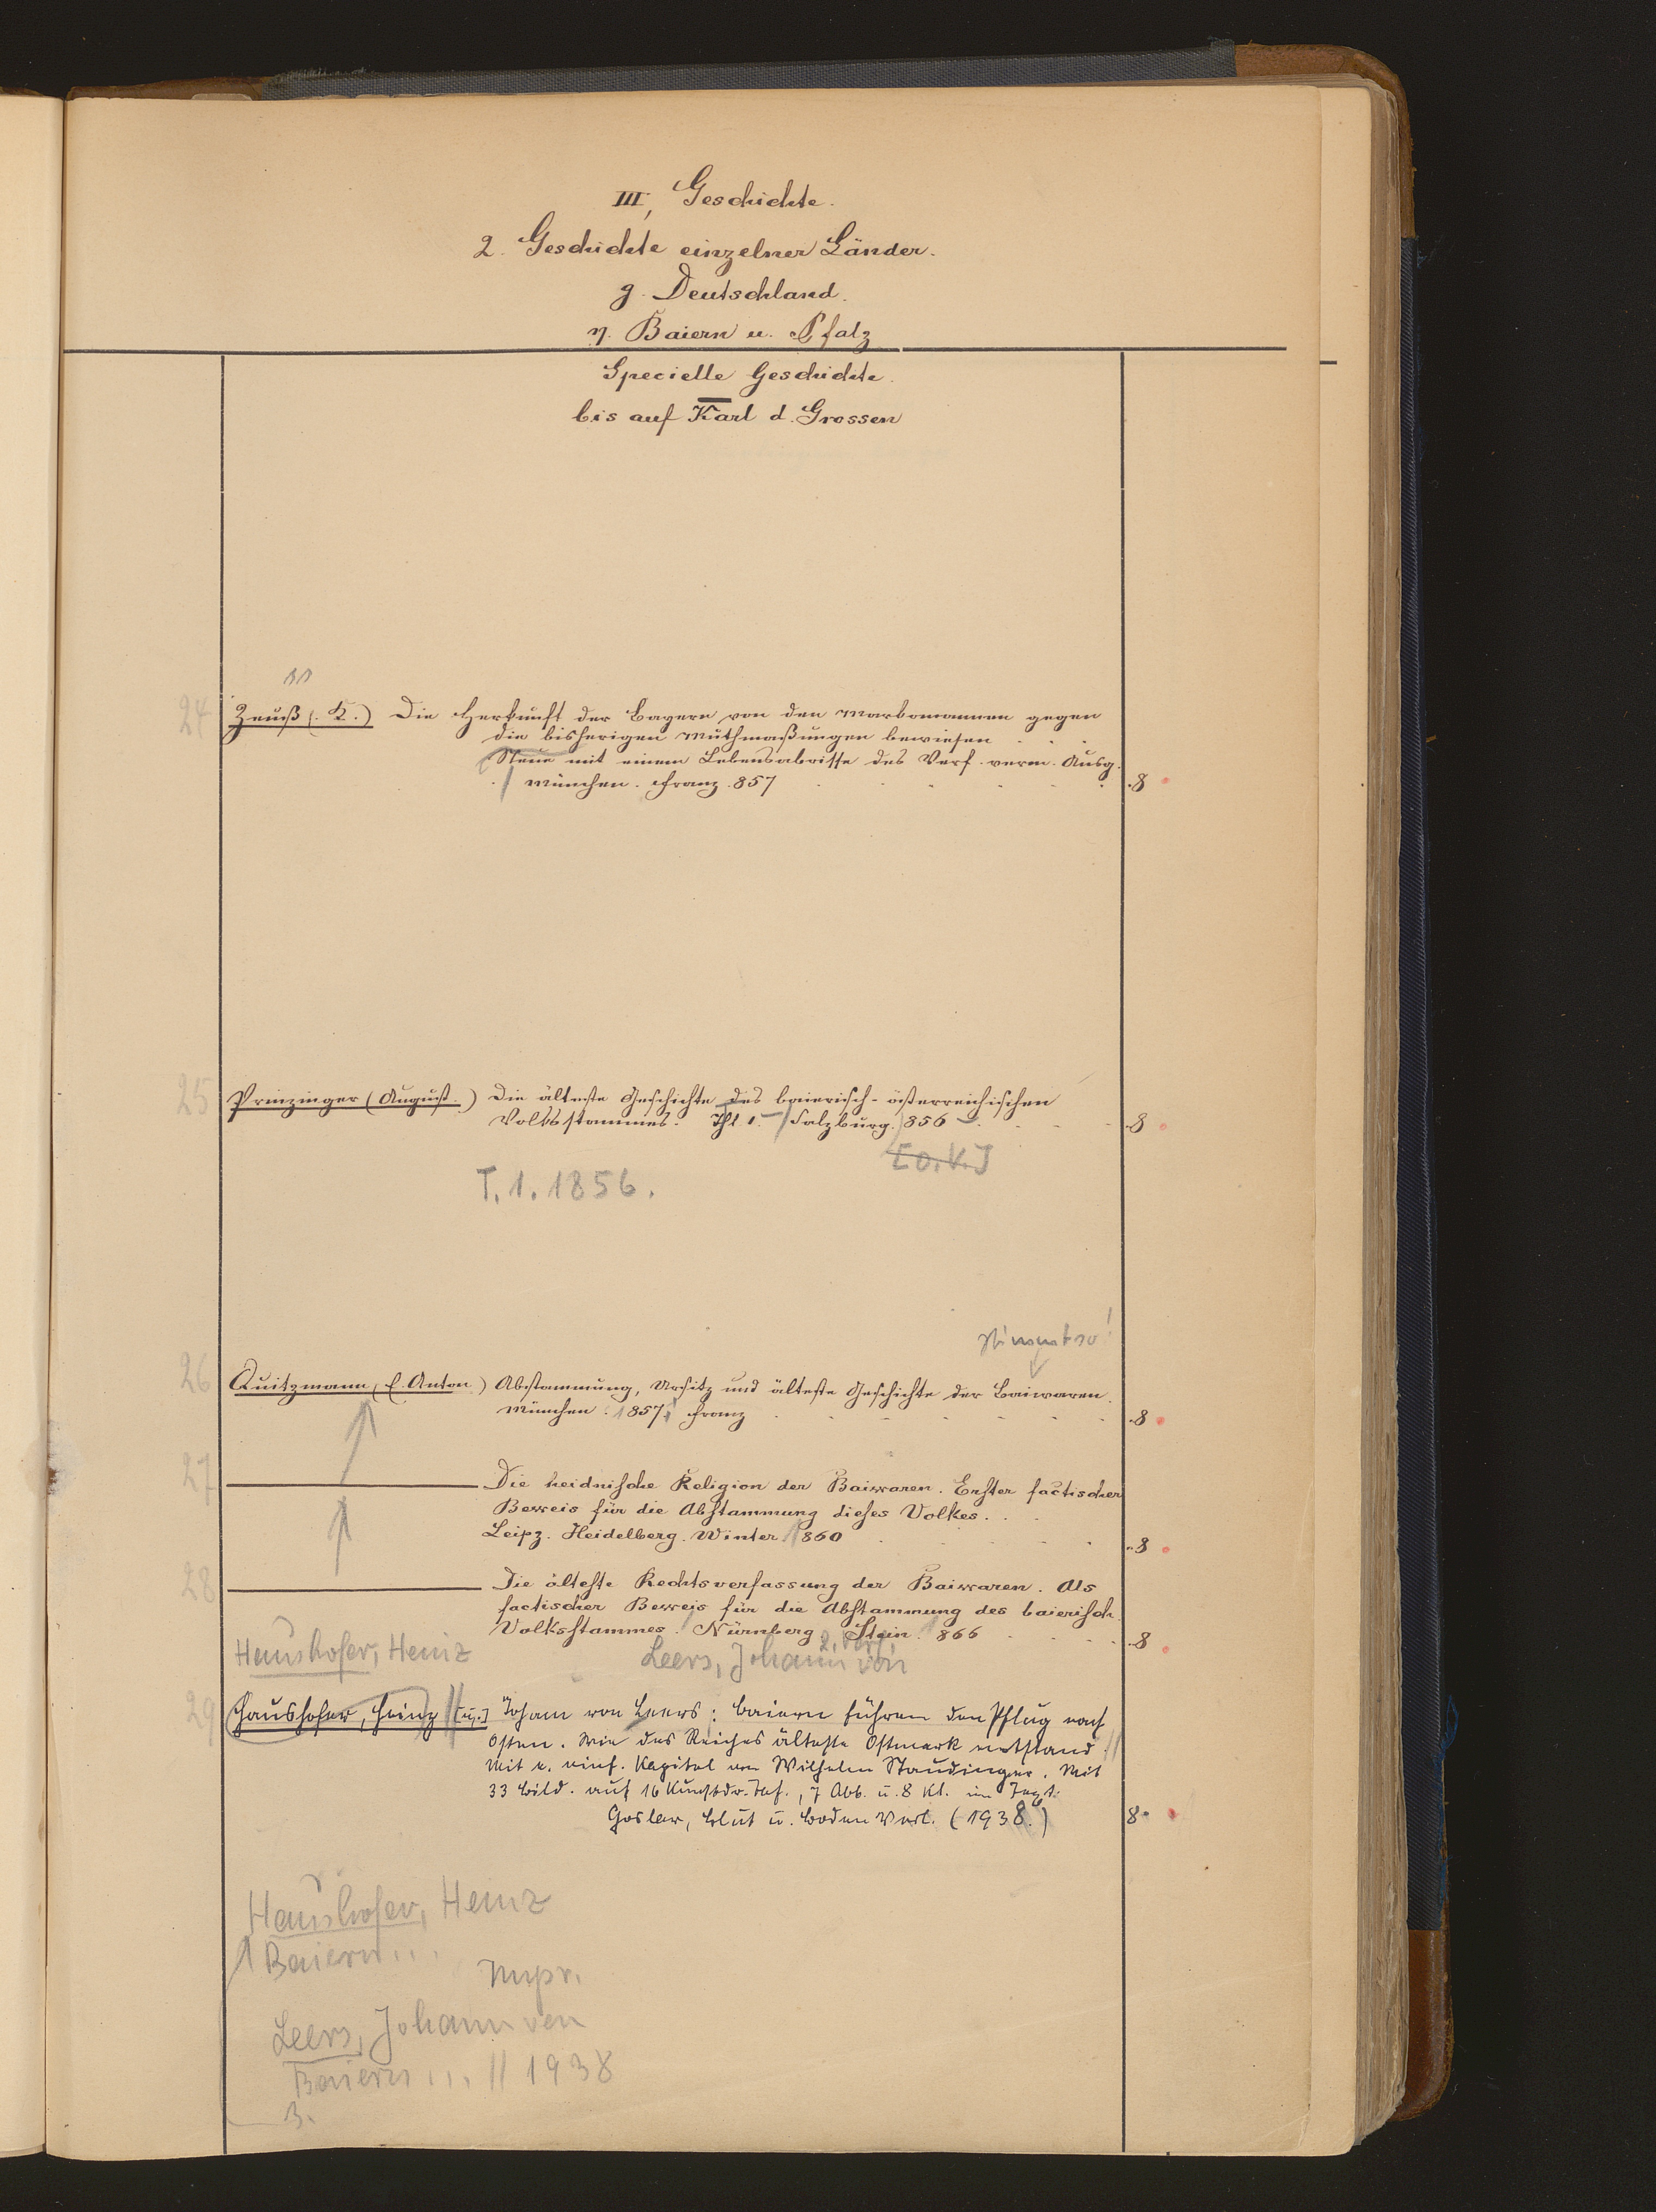 III, Geschichte.
2. Geschichte einzelner Länder.
g. Deutschland.
η. Baiern u. Pfalz
Specielle Geschichte.
bis auf Karl d. Grossen
24 Zeuß (. K.) Die Herkunft der Bayern von den Markomannen gegen
die bisherigen Muthmaßungen bewiesen
Neue mit einem Lebensabrisse des Verf. verm. Ausg.
München. Franz. 857 8
25 Prinzinger (August.) Die älteste Geschichte des baierisch-österreichischen
Volksstammes. Thl. 1. Salzburg. 856 8
[o.V.]
T. 1. 1856.
stimmt so!
26 Quitzmann, (E. Anton) Abstammung, Ursitz und älteste Geschichte der Baiwaren.
München. 1857. Franz 8
27 Die heidnische Religion der Baiwaren. Erster factischer
Beweis für die Abstammung dieses Volkes.
Leipz. Heidelberg. Winter 1860 8
28 Die älteste Rechtsverfassung der Baiwaren. Als
factischer Beweis für die Abstammung des baierisch.
Volksstammes. Nürnberg. Stein. 1866 8
2. Verf.
Haushofer, Heinz Leers, Johann von
29 Haushofer, Heinz [u.] Johann von Leers: Baiern führen den Pflug nach
Osten. Wie des Reiches älteste Ostmark entstand.
Mit e. einf. Kapitel von Wilhelm Staudinger. Mit
33 Bild. auf 16 Kunstdr.-Taf., 7 Abb. u. 8 Kt. im Text.
Goslar, Blut u. Boden Verl. (1938.) 8°
Haushofer, Heinz
Baiern...
Impr.
Leers, Johann von
Baiern ... // 1938
3.